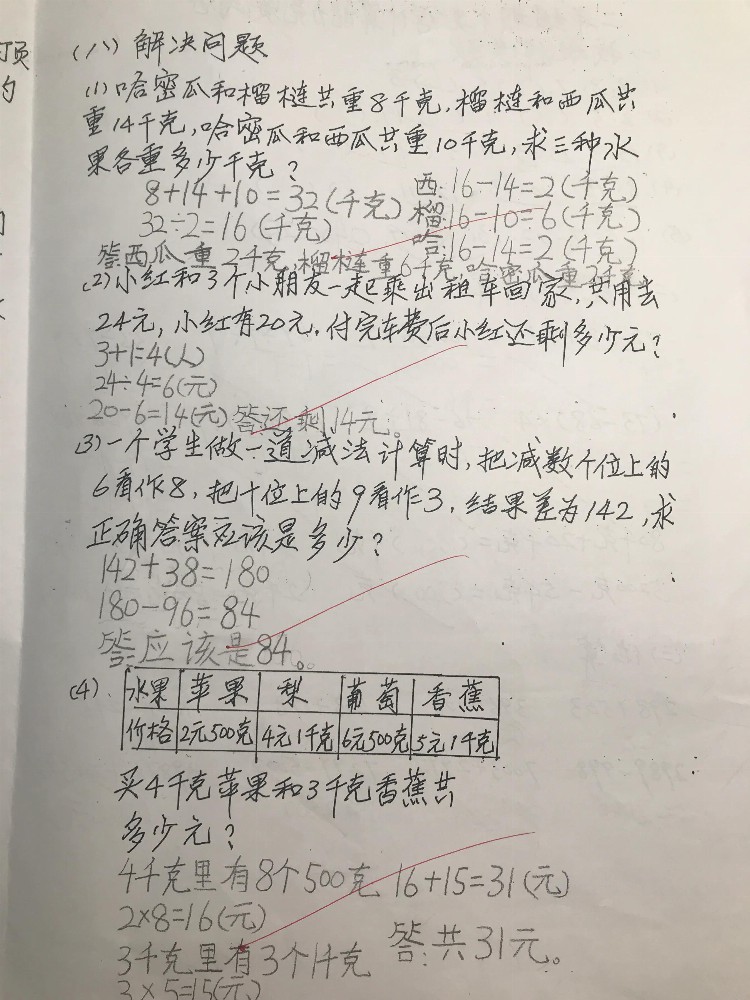 顶
的
(八) 解决问题
(1)哈密瓜和榴梿共重8千克,榴梿和西瓜共
重14千克,哈密瓜和西瓜共重10千克,求三种水
果各重多少千克?
8+14+10=32(千克)
32÷2=16(千克)
西:16-14=2(千克)
榴:16-10=6(千克)
哈:16-14=2(千克)
答:西瓜重2千克,榴梿重6千克,哈密瓜重2千克。
(2)小红和3个小朋友一起乘出租车回家,共用去
24元,小红有20元.付完车费后小红还剩多少元?
3+1=4(人)
24÷4=6(元)
20-6=14(元) 答还剩14元。
(3)一个学生做一道减法计算时,把减数个位上的
6看作8,把十位上的9看作3,结果差为142,求
正确答案应该是多少?
142+38=180
180-96=84
答:应该是84。
(4).
水果 苹果 梨 葡萄 香蕉
价格 2元500克 4元1千克 6元500克 5元1千克
买4千克苹果和3千克香蕉共
多少元?
4千克里有8个500克
2×8=16(元)
3千克里有3个1千克
3×5=15(元)
16+15=31(元)
答:共31元。